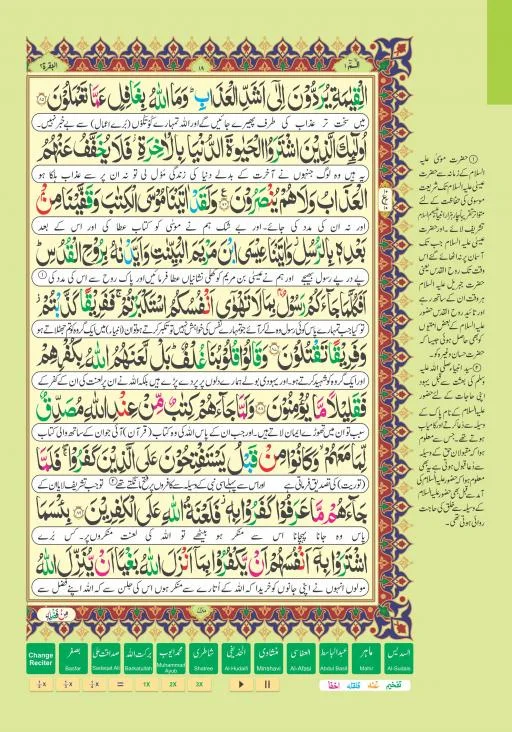 الٓمّٓ ١
١٨
البقرة ٢
الْقِيٰمَةِ يُرَدُّوْنَ اِلٰٓى اَشَدِّ الْعَذَابِ ؕ وَمَا اللّٰهُ بِغَافِلٍ عَمَّا تَعْمَلُوْنَ ﴿۸۵﴾
میں سخت تر عذاب کی طرف پھیرے جائیں گے اور اللہ تمہارے کوتکوں (بُرے اعمال) سے بے خبر نہیں۔
اُولٰٓئِكَ الَّذِيْنَ اشْتَرَوُا الْحَيٰوةَ الدُّنْيَا بِالْاٰخِرَةِ ؗ فَلَا يُخَفَّفُ عَنْهُمُ
یہ ہیں وہ لوگ جنہوں نے آخرت کے بدلے دنیا کی زندگی مول لی تو نہ ان پر سے عذاب ہلکا ہو
الْعَذَابُ وَلَا هُمْ يُنْصَرُوْنَ ﴿۸۶﴾ وَلَقَدْ اٰتَيْنَا مُوْسَى الْكِتٰبَ وَقَفَّيْنَا مِنْۢ
اور نہ ان کی مدد کی جائے۔ اور بے شک ہم نے موسیٰ کو کتاب عطا کی اور اس کے بعد
بَعْدِهٖ بِالرُّسُلِ ؗ وَاٰتَيْنَا عِيْسَى ابْنَ مَرْيَمَ الْبَيِّنٰتِ وَاَيَّدْنٰهُ بِرُوْحِ الْقُدُسِ ؕ
پے در پے رسول بھیجے اور ہم نے عیسیٰ بن مریم کو کھلی نشانیاں عطا فرمائیں اور پاک روح سے اس کی مدد کی (۱)
اَفَكُلَّمَا جَآءَكُمْ رَسُوْلٌۢ بِمَا لَا تَهْوٰٓى اَنْفُسُكُمُ اسْتَكْبَرْتُمْ ۚ فَفَرِيْقًا كَذَّبْتُمْ ؗ
تو کیا جب تمہارے پاس کوئی رسول وہ لے کر آئے جو تمہارے نفس کی خواہش نہیں تو تکبر کرتے ہو تو ان (انبیاء) میں ایک گروہ کو تم جھٹلاتے ہو
وَفَرِيْقًا تَقْتُلُوْنَ ﴿۸۷﴾ وَقَالُوْا قُلُوْبُنَا غُلْفٌ ؕ بَلْ لَّعَنَهُمُ اللّٰهُ بِكُفْرِهِمْ
اور ایک گروہ کو شہید کرتے ہو۔ اور یہودی بولے ہمارے دلوں پر پردے پڑے ہیں بلکہ اللہ نے ان پر لعنت کی ان کے کفر کے
فَقَلِيْلًا مَّا يُؤْمِنُوْنَ ﴿۸۸﴾ وَلَمَّا جَآءَهُمْ كِتٰبٌ مِّنْ عِنْدِ اللّٰهِ مُصَدِّقٌ
سبب تو ان میں تھوڑے ایمان لاتے ہیں۔ اور جب ان کے پاس اللہ کی وہ کتاب (قرآن) آئی جو ان کے ساتھ والی کتاب
لِّمَا مَعَهُمْ ۙ وَكَانُوْا مِنْ قَبْلُ يَسْتَفْتِحُوْنَ عَلَى الَّذِيْنَ كَفَرُوْا ۚ فَلَمَّا
(توریت) کی تصدیق فرماتی ہے اور اس سے پہلے اسی نبی کے وسیلہ سے کافروں پر فتح مانگتے تھے (۲) تو جب تشریف لایا ان کے
جَآءَهُمْ مَّا عَرَفُوْا كَفَرُوْا بِهٖ ؗ فَلَعْنَةُ اللّٰهِ عَلَى الْكٰفِرِيْنَ ﴿۸۹﴾ بِئْسَمَا
پاس وہ جانا پہچانا اس سے منکر ہو بیٹھے تو اللہ کی لعنت منکروں پر۔ کس بُرے
اشْتَرَوْا بِهٖٓ اَنْفُسَهُمْ اَنْ يَّكْفُرُوْا بِمَآ اَنْزَلَ اللّٰهُ بَغْيًا اَنْ يُّنَزِّلَ اللّٰهُ
مولوں انہوں نے اپنی جانوں کو خریدا کہ اللہ کے اُتارے سے منکر ہوں اس کی جلن سے کہ اللہ اپنے فضل سے
منزل
مِنْ فَضْلِهٖ
(۱) حضرت موسیٰ علیہ
السلام کے زمانہ سے حضرت
عیسیٰ علیہ السلام تک شریعت
موسوی کی حفاظت کے لئے
تشریف لائے۔ اور حضرت
عیسیٰ علیہ السلام جب تک
آسمان پر نہ اٹھائے گئے اس
وقت تک روح القدس یعنی
حضرت جبریل علیہ السلام
ہر وقت ان کے ساتھ رہے
Change Reciter
بصفر
Basfar
صداقت علی
Sadaqat Ali
برکت اللہ
Barkatullah
محمد ایوب
Muhammad Ayub
شاطری
Shatree
الحذیفی
Al-Hudaifi
منشاوی
Minshavi
العفاسی
Al-Afasi
عبدالباسط
Abdul Basit
ماہر
Mahir
السدیس
Al-Sudais
= 1X 2X 3X
تفخیم غنہ قلقلہ اخفا